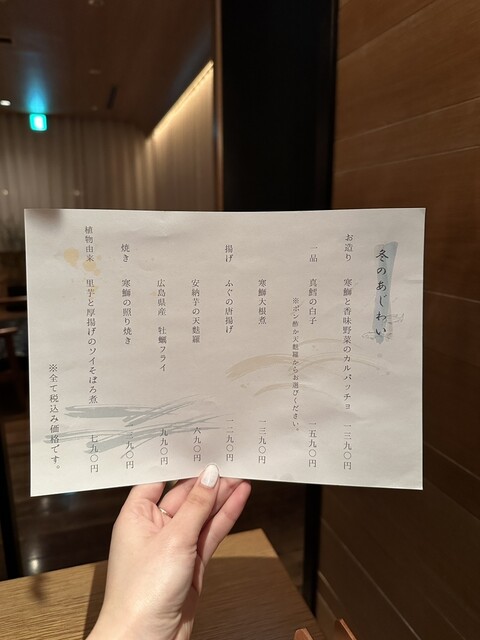 冬のあじわい
お造り 寒鰤と香味野菜のカルパッチョ 一三九〇円
一品 真鱈の白子 一五九〇円
※ポン酢か天麩羅からお選びください。
寒鰤大根煮 一三九〇円
揚げ ふぐの唐揚げ 一二九〇円
安納芋の天麩羅 六九〇円
広島県産 牡蠣フライ 九九〇円
焼き 寒鰤の照り焼き 三九〇円
植物由来 里芋と厚揚げのソイそぼろ煮 七九〇円
※全て税込み価格です。